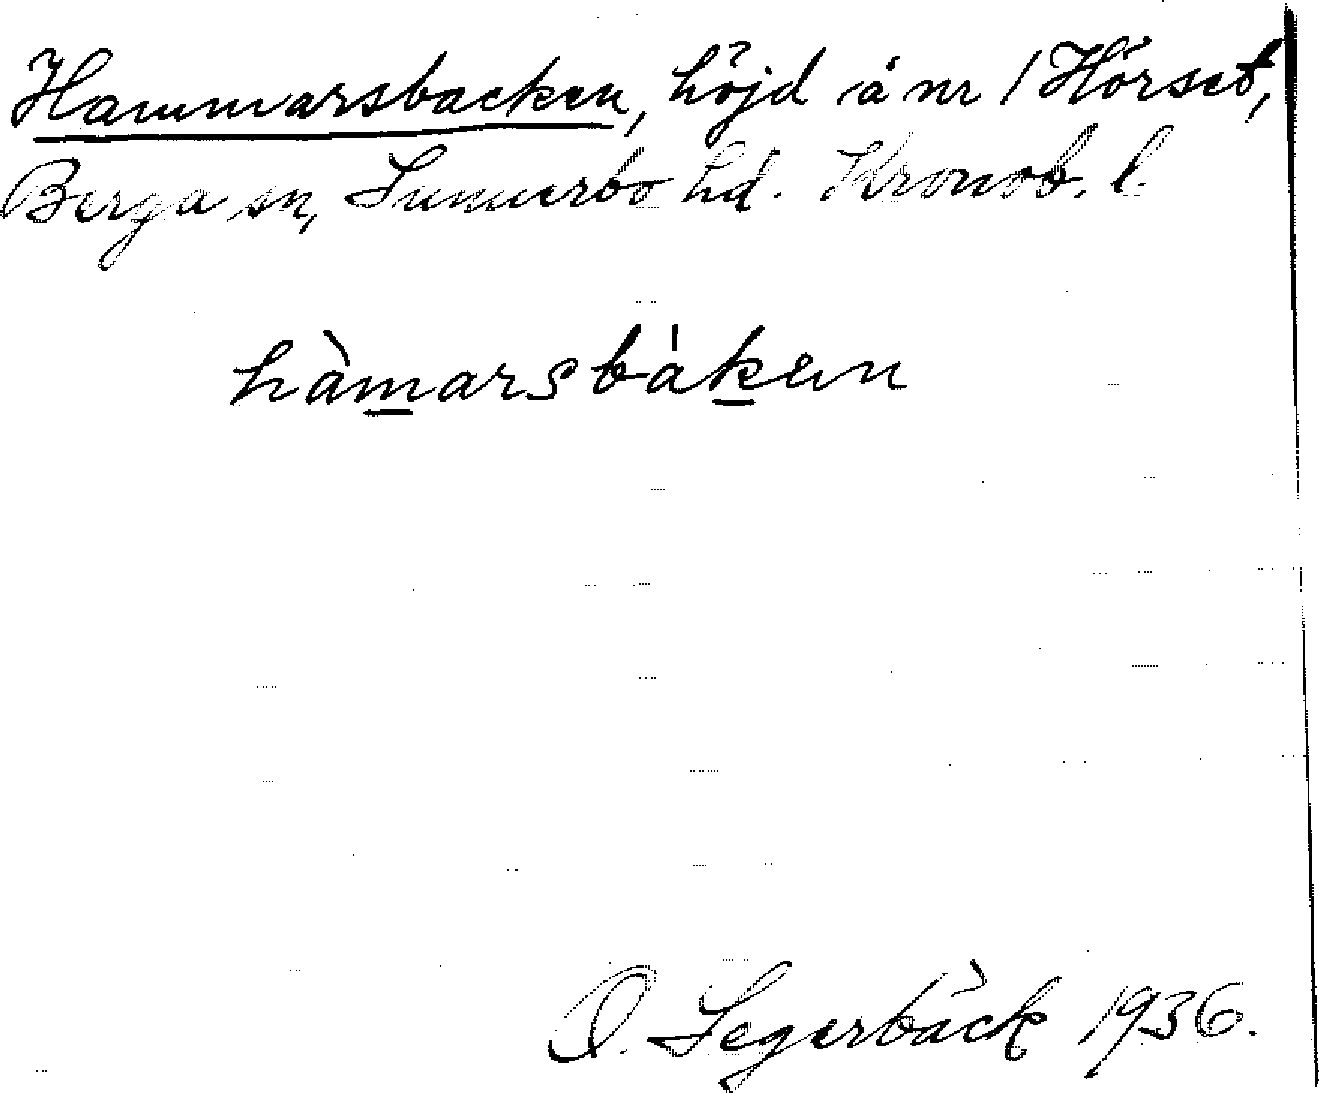 Hammarsbacken, höjd å nr 1 Hörset,
Berga sn, Sunnerbo hd. Kronob. l.
hàmarsbáken
O. Segerbäck 1936.